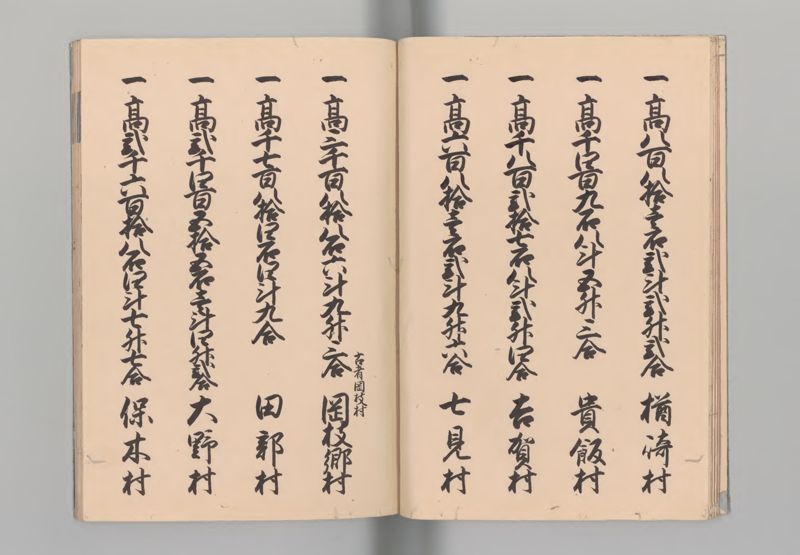 一 高八百八拾壱石弐斗弐升弐合 楢崎村
一 高千四百九石八斗五升三合 貴飯村
一 高千八百弐拾七石八斗弐升四合 吉賀村
一 高六百八拾壱石弐斗九升六合 七見村
古者岡枝村
一 高三千百八拾八石六斗九升三合 岡枝郷村
一 高千七百八拾四石四斗九合 田部村
一 高弐千四百五拾五石壱斗四升弐合 大野村
一 高弐千六百拾八石四斗七升七合 保木村